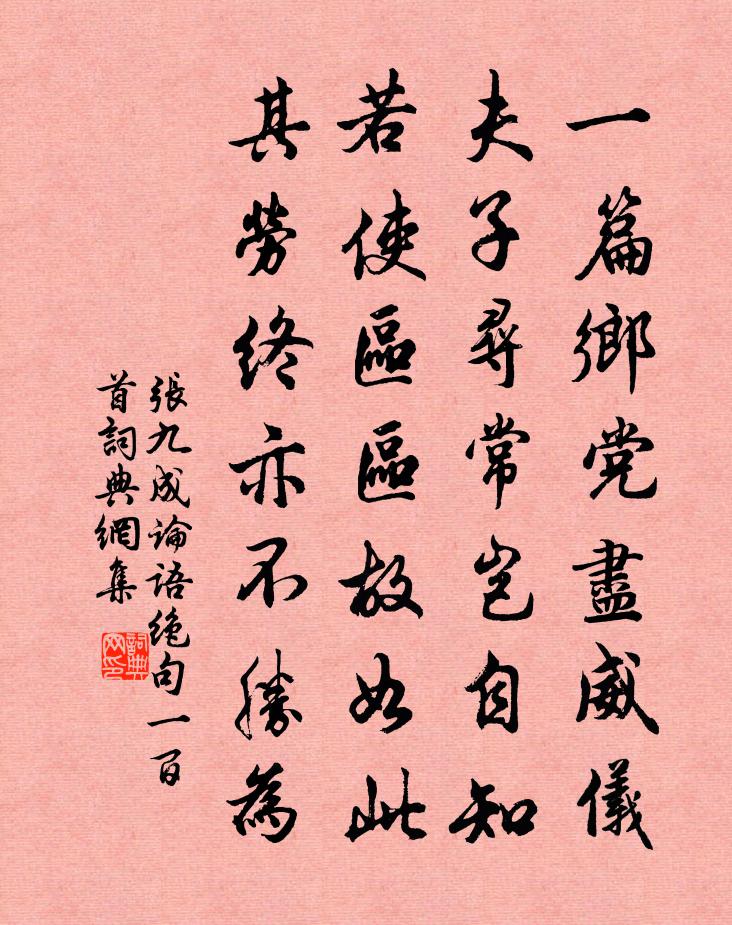 一篇鄉党盡威儀
夫子尋常豈自知
若使區區故如此
其勞終亦不勝為
張九成論語絶句一百
首詞典網集
詞典
网印